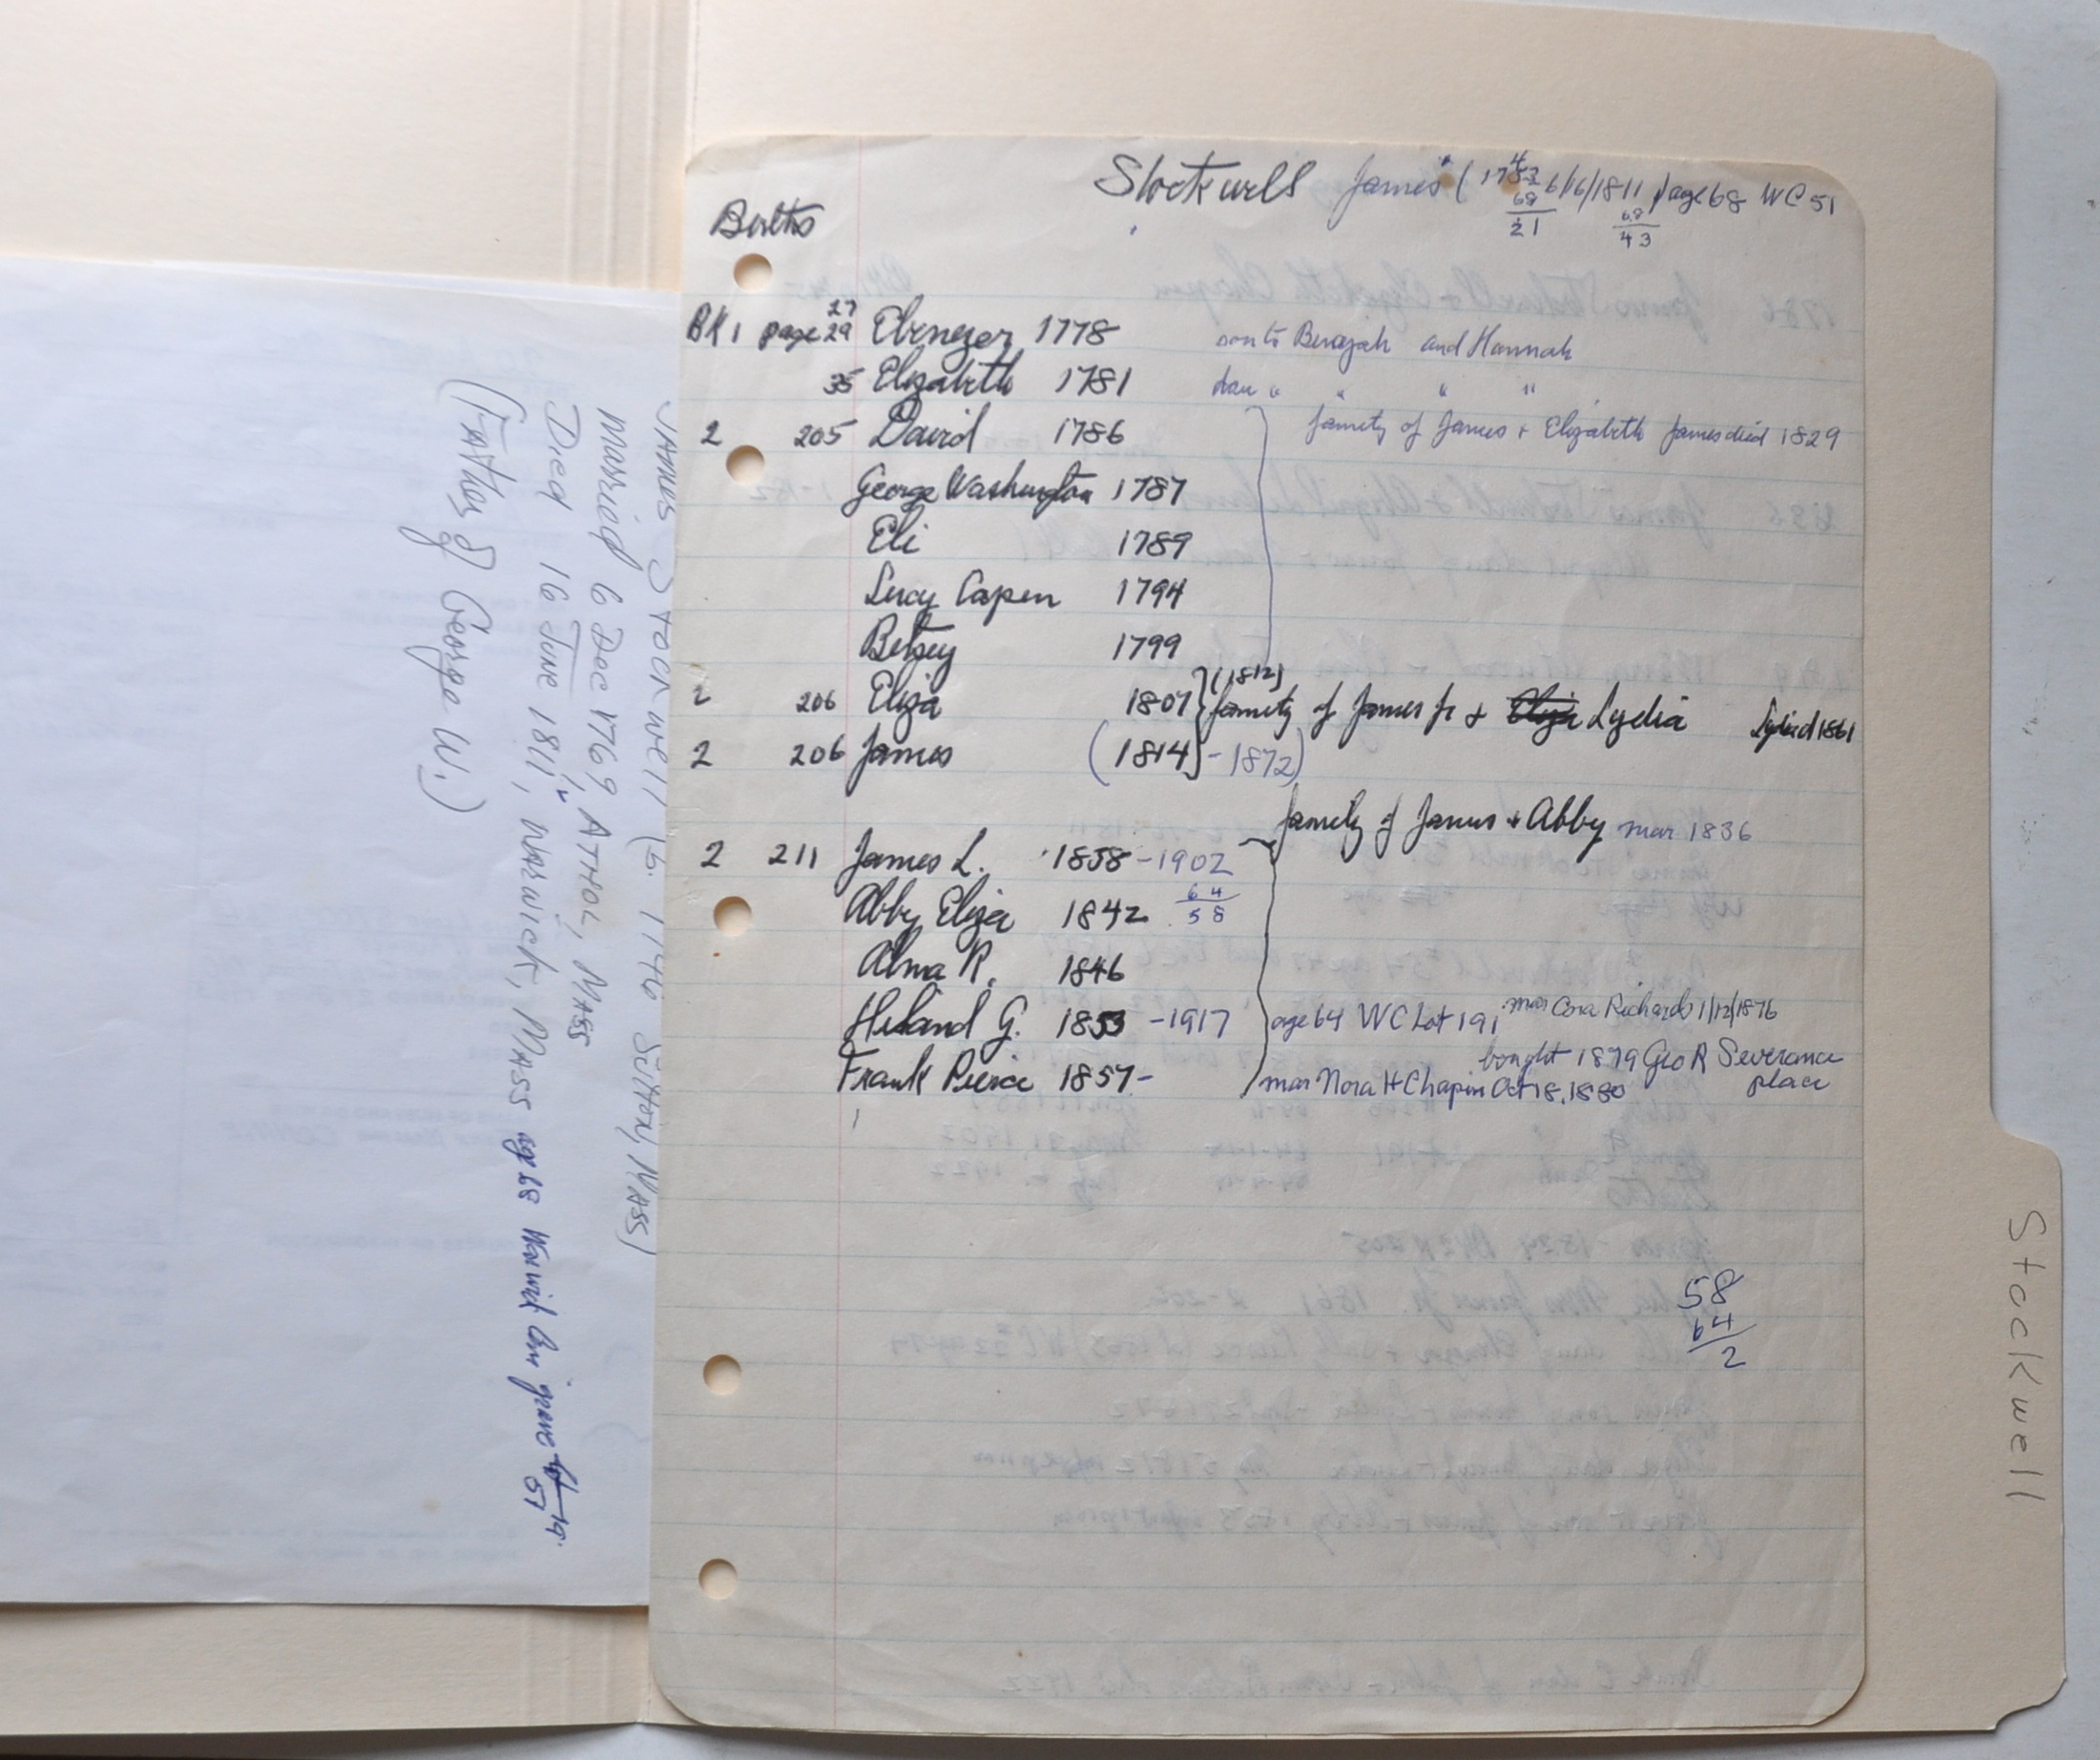 Stockwells James (1743 6/16/1811 page 68 WC 51
68
21
68
43
Births
BK 1 page 29 27 Ebenezer 1778 son to Berajah and Hannah
35 Elizabeth 1781 dau " " " "
2 205 David 1786 family of James + Elizabeth James died 1829
George Washington 1787
Eli 1789
Lucy Capen 1794
Betsey 1799
2 206 Eliza 1807 (1812) family of James Jr + Eliza Lydia Lydia d 1861
2 206 James (1814 - 1872)
family of James + Abby mar 1836
2 211 James L. 1838 - 1902
64
58
Abby Eliza 1842
Alma R. 1846
Heland G. 1853 - 1917 age 64 WC Lot 191 mar Cora Richards 1/12/1876
bought 1879 Geo R Severance place
Frank Pierce 1857- mar Nora H Chapin Oct 18, 1880
58
64
2
James Stockwell (b. 1746 Sutton, Mass)
Married 6 Dec 1769, Athol, Mass
Died 16 June 1811, Warwick, Mass age 68 Warwick Cem grave 51
(Father of George W.)
Stockwell